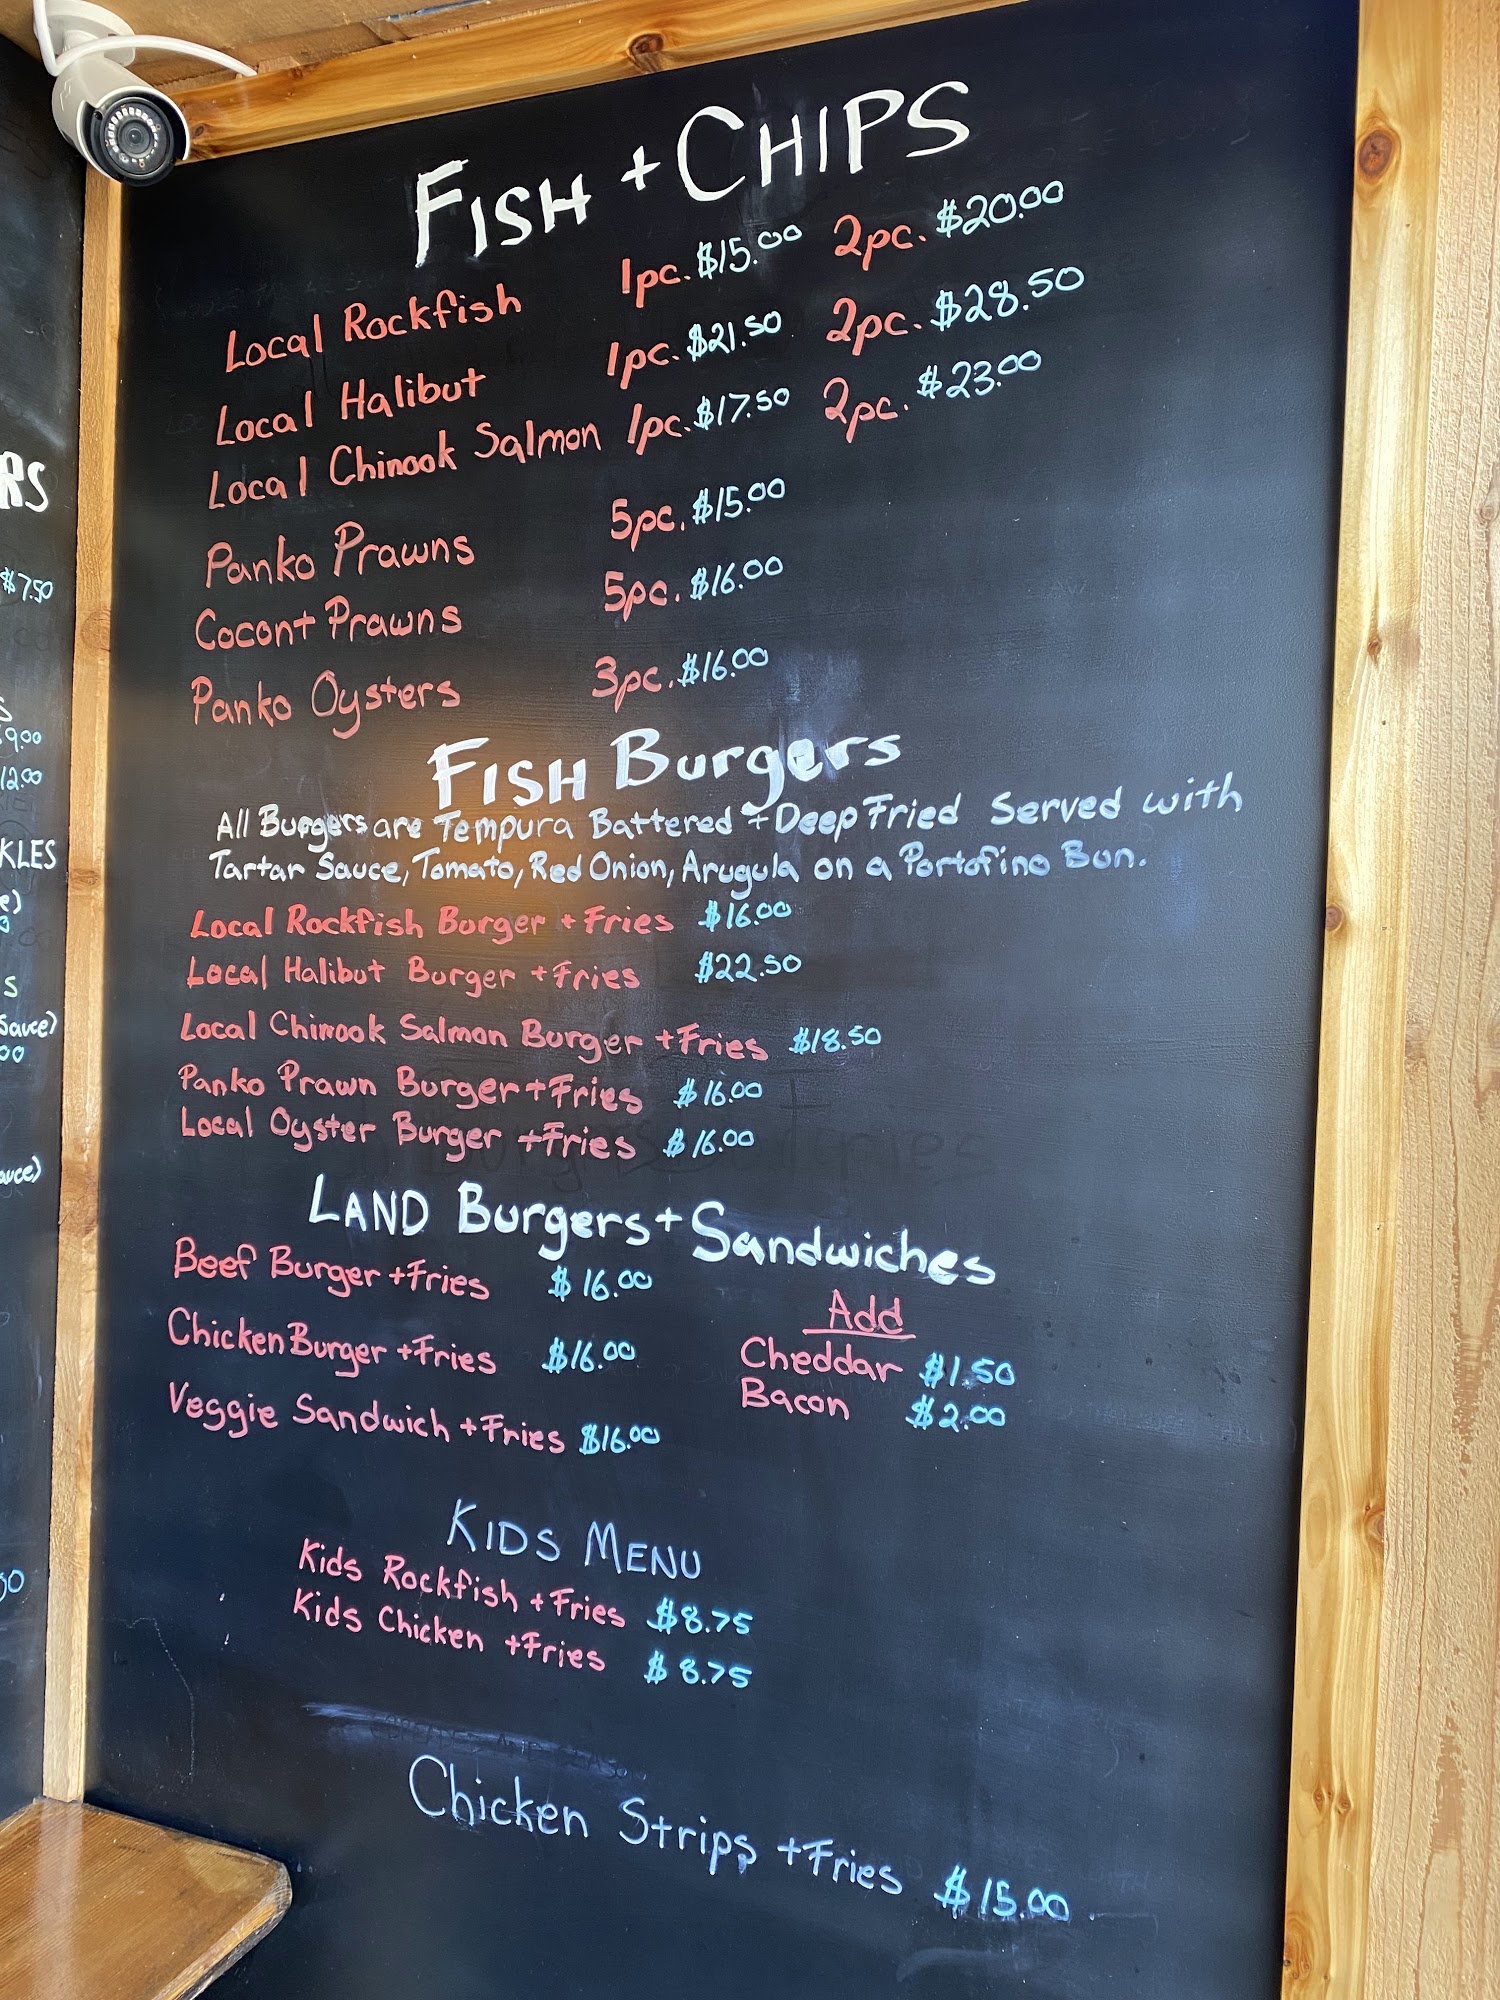 FISH + CHIPS
Local Rockfish 1pc. $15.00 2pc. $20.00
Local Halibut 1pc. $21.50 2pc. $28.50
Local Chinook Salmon 1pc. $17.50 2pc. $23.00
Panko Prawns 5pc. $15.00
Cocont Prawns 5pc. $16.00
Panko Oysters 3pc. $16.00
FISH Burgers
All Burgers are Tempura Battered + Deep Fried Served with
Tartar Sauce, Tomato, Red Onion, Arugula on a Portofino Bun.
Local Rockfish Burger + Fries $16.00
Local Halibut Burger + Fries $22.50
Local Chinook Salmon Burger + Fries $18.50
Panko Prawn Burger + Fries $16.00
Local Oyster Burger + Fries $16.00
LAND Burgers + Sandwiches
Beef Burger + Fries $16.00
Chicken Burger + Fries $16.00
Veggie Sandwich + Fries $16.00
Add
Cheddar $1.50
Bacon $2.00
KIDS MENU
Kids Rockfish + Fries $8.75
Kids Chicken + Fries $8.75
Chicken Strips + Fries $15.00
RS
$7.50
9.00
12.00
KLES
Sauce)